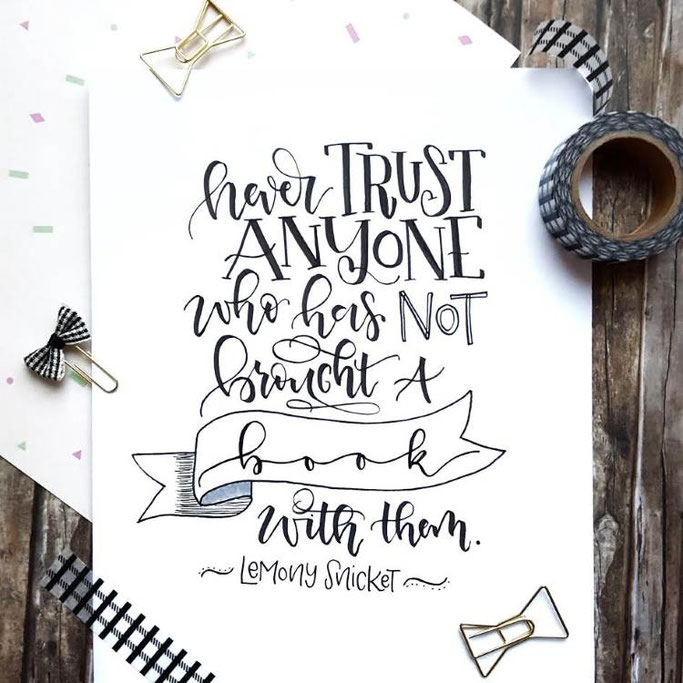 never TRUST
ANYONE
who has NOT
brought A
book
with them.
~ LEMONY SNICKET ~